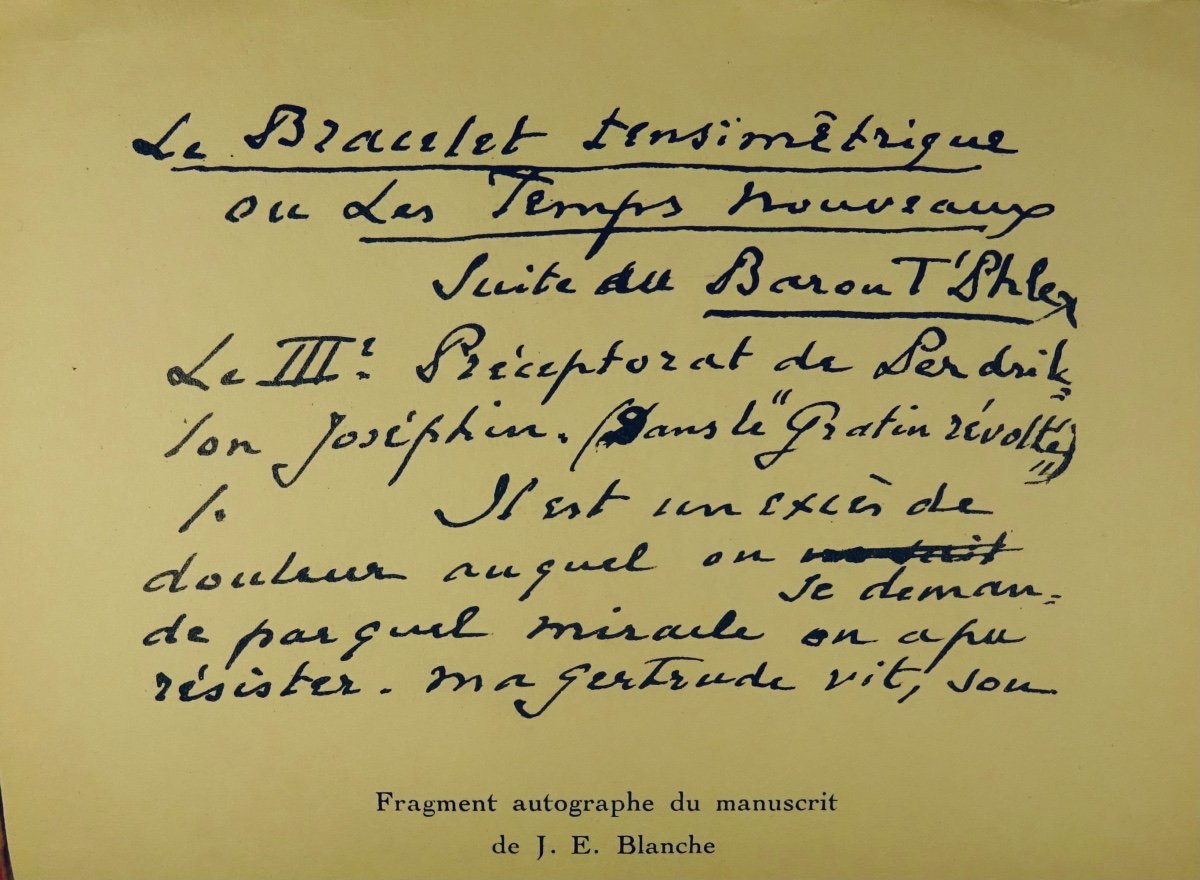 Le Bracelet tensimêtrique
ou Les Temps nouveaux
Suite du Baron T'Sklex
Le IIIe Préceptorat de Perdril-
lon Joséphin. (Dans le "Gratin révolté")
1. Il est un excès de
douleur auquel on
se deman-
de par quel miracle on a pu
résister. Ma Gertrude vit, son
Fragment autographe du manuscrit
de J. E. Blanche